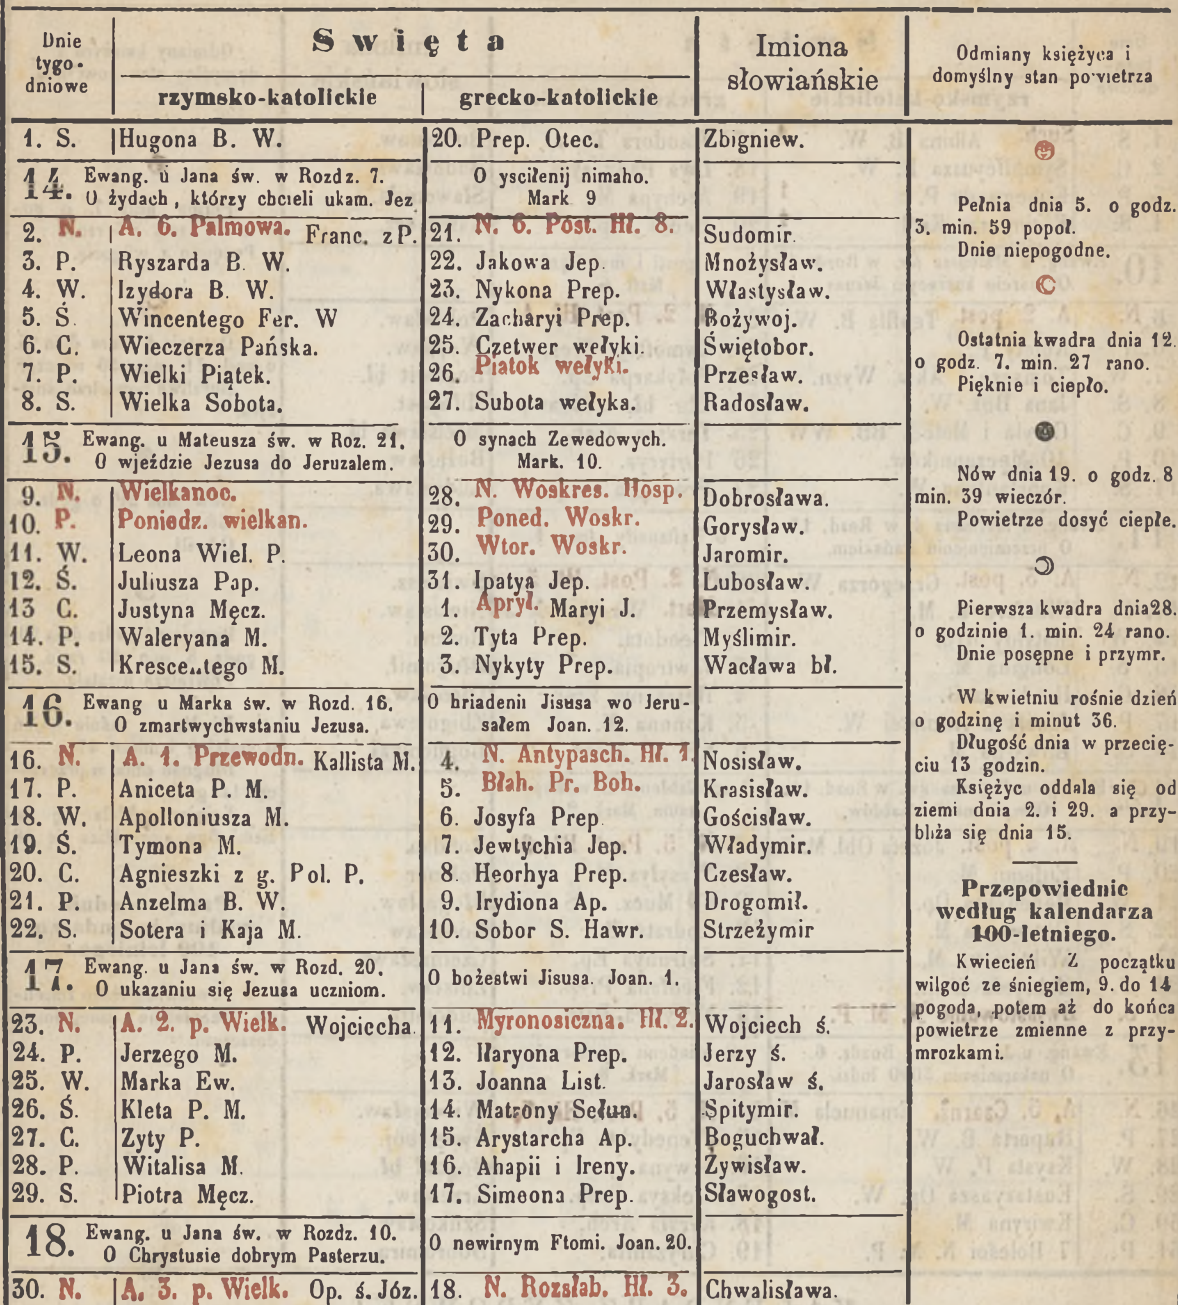 Dnie tygo-dniowe | Swięta | Imiona słowiańskie | Odmiany księżyca i domyślny stan powietrza
rzymsko-katolickie | grecko-katolickie
1. S. Hugona B. W. | 20. Prep. Otec. | Zbigniew.
14. Ewang. u Jana św. w Rozdz. 7. | O ysciłenij nimaho.
O żydach, którzy chcieli ukam. Jez | Mark 9
2. N. A. 6. Palmowa. Franc. z P. | 21. N. 6. Post. Hł. 8. | Sudomir.
3. P. Ryszarda B. W. | 22. Jakowa Jep. | Mnożysław.
4. W. Izydora B. W. | 23. Nykona Prep. | Włastysław.
5. Ś. Wincentego Fer. W | 24. Zacharyi Prep. | Bożywoj.
6. C. Wieczerza Pańska. | 25. Czetwer wełyki. | Świętobor.
7. P. Wielki Piątek. | 26. Piatok wełyki. | Przesław.
8. S. Wielka Sobota. | 27. Subota wełyka. | Radosław.
15. Ewang. u Mateusza św. w Roz. 21. | O synach Zewedowych.
O wjeździe Jezusa do Jeruzalem. | Mark. 10.
9. N. Wielkanoc. | 28. N. Woskres. Hosp. | Dobrosława.
10. P. Poniedz. wielkan. | 29. Poned. Woskr. | Gorysław.
11. W. Leona Wiel. P. | 30. Wtor. Woskr. | Jaromir.
12. Ś. Juliusza Pap. | 31. Ipatya Jep. | Lubosław.
13 C. Justyna Męcz. | 1. Apryl. Maryi J. | Przemysław.
14. P. Waleryana M. | 2. Tyta Prep. | Myślimir.
15. S. Kresce..tego M. | 3. Nykyty Prep. | Wacława bł.
16. Ewang u Marka św. w Rozd. 16. | O hriadenii Jisusa wo Jeru-
O zmartwychwstaniu Jezusa. | sałem Joan. 12.
16. N. A. 1. Przewodn. Kallista M. | 4. N. Antypasch. Hł. 1. | Nosisław.
17. P. Aniceta P. M. | 5. Błah. Pr. Boh. | Krasisław.
18. W. Apolloniusza M. | 6. Josyfa Prep. | Gościsław.
19. Ś. Tymona M. | 7. Jewtychia Jep. | Władymir.
20. C. Agnieszki z g. Pol. P. | 8 Heorhya Prep. | Czesław.
21. P. Anzelma B. W. | 9. Irydiona Ap. | Drogomił.
22. S. Sotera i Kaja M. | 10. Sobor S. Hawr. | Strzeżymir
17. Ewang. u Jana św. w Rozd. 20. | O bożestwi Jisusa. Joan. 1.
O ukazaniu się Jezusa uczniom.
23. N. A. 2. p. Wielk. Wojciecha | 11. Myronosiczna. Hł. 2. | Wojciech ś.
24. P. Jerzego M. | 12. Iłaryona Prep. | Jerzy ś.
25. W. Marka Ew. | 13. Joanna List. | Jarosław ś.
26. Ś. Kleta P. M. | 14. Matrony Sełun. | Spitymir.
27. C. Zyty P. | 15. Arystarcha Ap. | Boguchwał.
28. P. Witalisa M. | 16. Ahapii i Ireny. | Żywisław.
29. S. Piotra Męcz. | 17. Simeona Prep. | Sławogost.
18. Ewang. u Jana św. w Rozdz. 10. | O newirnym Ftomi. Joan. 20.
O Chrystusie dobrym Pasterzu.
30. N. A. 3. p. Wielk. Op. ś. Józ. | 18. N. Rozsłab. Hł. 3. | Chwalisława.
Pełnia dnia 5. o godz.
3. min. 59 popoł.
Dnie niepogodne.
Ostatnia kwadra dnia 12.
o godz. 7. min. 27 rano.
Pięknie i ciepło.
Nów dnia 19. o godz. 8
min. 39 wieczór.
Powietrze dosyć ciepłe.
Pierwsza kwadra dnia 28.
o godzinie 1. min. 24 rano.
Dnie posępne i przymr.
W kwietniu rośnie dzień
o godzinę i minut 36.
Długość dnia w przecię-
ciu 13 godzin.
Księżyc oddala się od
ziemi dnia 2. i 29. a przy-
bliża się dnia 15.
Przepowiednie
według kalendarza
100-letniego.
Kwiecień Z początku
wilgoć ze śniegiem, 9. do 14
pogoda, potem aż do końca
powietrze zmienne z przy-
mrozkami.